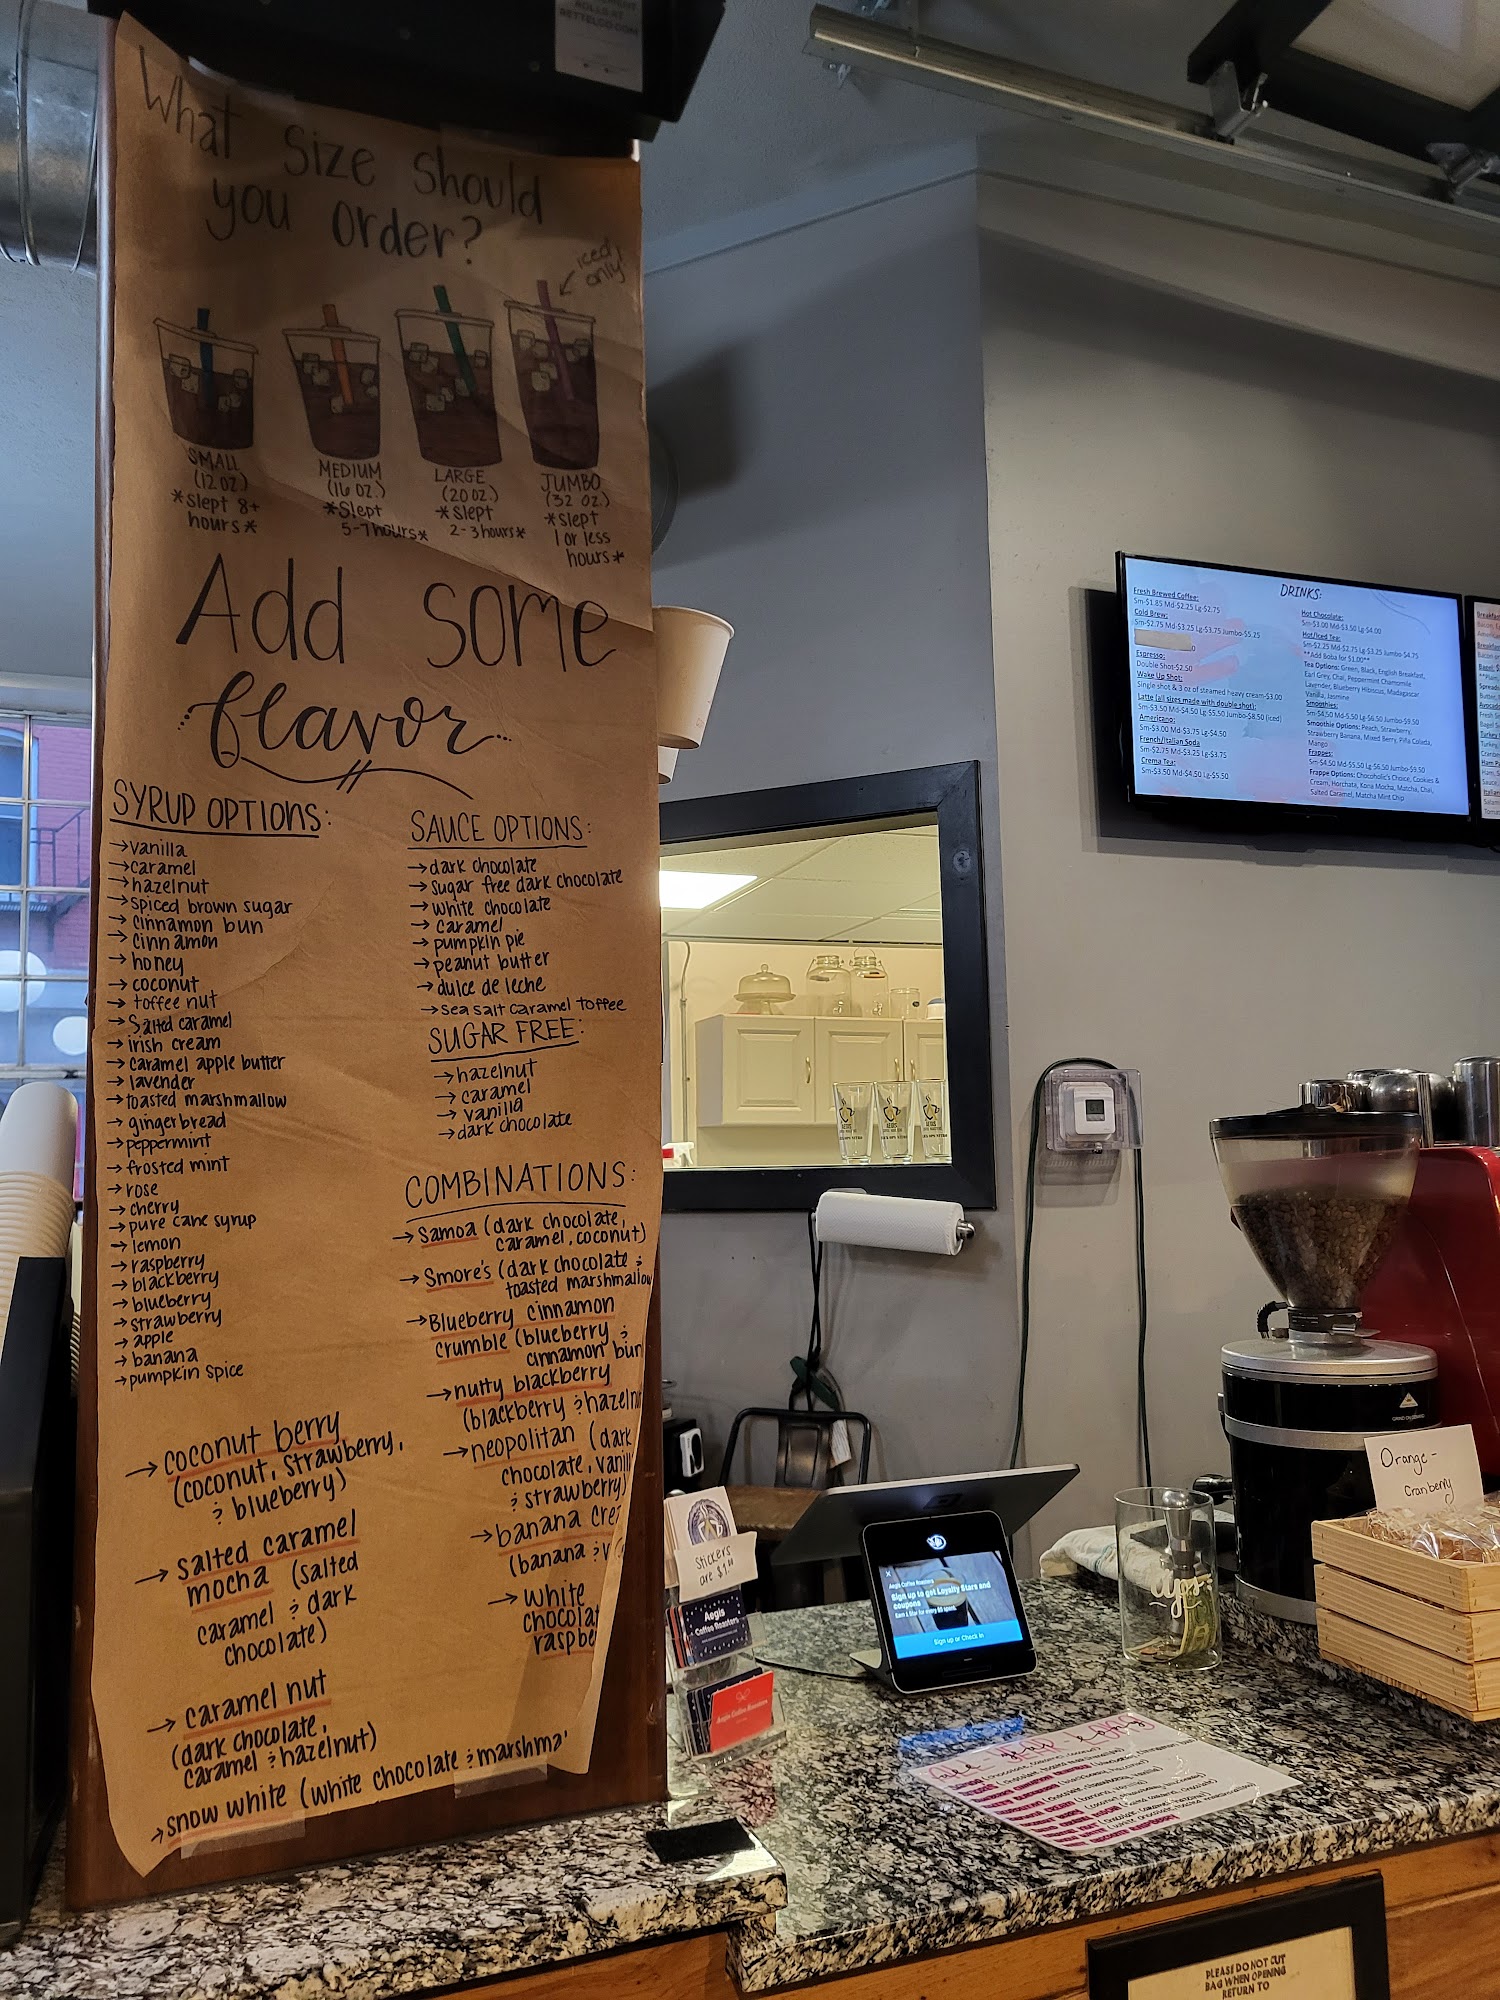 ROLLS AT
BETTELCO.COM
What Size Should
you order?
iced
only!
SMALL
(12 OZ)
*slept 8+
hours*
MEDIUM
(16 OZ.)
*Slept
5-7 hours*
LARGE
(20 OZ.)
*slept
2-3 hours*
JUMBO
(32 OZ.)
*slept
1 or less
hours*
Add some
flavor
SYRUP OPTIONS:
→vanilla
→caramel
→hazelnut
→spiced brown sugar
→cinnamon bun
→cinnamon
→honey
→coconut
→toffee nut
→Salted caramel
→irish cream
→caramel apple butter
→lavender
→toasted marshmallow
→gingerbread
→peppermint
→frosted mint
→rose
→cherry
→pure cane syrup
→lemon
→raspberry
→blackberry
→blueberry
→strawberry
→apple
→banana
→pumpkin spice
SAUCE OPTIONS:
→dark chocolate
→sugar free dark chocolate
→white chocolate
→caramel
→pumpkin pie
→peanut butter
→dulce de leche
→sea salt caramel toffee
SUGAR FREE:
→hazelnut
→caramel
→vanilla
→dark chocolate
COMBINATIONS:
→Samoa (dark chocolate,
caramel, coconut)
→Smore's (dark chocolate &
toasted marshmallow
→Blueberry cinnamon
crumble (blueberry &
cinnamon bun
→nutty blackberry
(blackberry & hazelnu
→neopolitan (dark
chocolate, vanill
& strawberry)
→banana cre
(banana & v
→white
chocolat
raspbe
→coconut berry
(coconut, strawberry,
& blueberry)
→salted caramel
mocha (salted
caramel & dark
chocolate)
→caramel nut
(dark chocolate,
caramel & hazelnut)
→snow white (white chocolate & marshma
DRINKS:
Fresh Brewed Coffee:
Sm-$1.85 Md-$2.25 Lg-$2.75
Cold Brew:
Sm-$2.75 Md-$3.25 Lg-$3.75 Jumbo-$5.25
Espresso:
Double Shot-$2.50
Wake Up Shot:
Single shot & 3 oz of steamed heavy cream-$3.00
Latte (all sizes made with double shot):
Sm-$3.50 Md-$4.50 Lg-$5.50 Jumbo-$8.50 (iced)
Americano:
Sm-$3.00 Md-$3.75 Lg-$4.50
French/Italian Soda
Sm-$2.75 Md-$3.25 Lg-$3.75
Crema Tea:
Sm-$3.50 Md-$4.50 Lg-$5.50
Hot Chocolate:
Sm-$3.00 Md-$3.50 Lg-$4.00
Hot/Iced Tea:
Sm-$2.25 Md-$2.75 Lg-$3.25 Jumbo-$4.75
**Add Boba for $1.00**
Tea Options: Green, Black, English Breakfast,
Earl Grey, Chai, Peppermint Chamomile
Lavender, Blueberry Hibiscus, Madagascar
Vanilla, Jasmine
Smoothies:
Sm-$4.50 Md-5.50 Lg-$6.50 Jumbo-$9.50
Smoothie Options: Peach, Strawberry,
Strawberry Banana, Mixed Berry, Piña Colada,
Mango
Frappes:
Sm-$4.50 Md-$5.50 Lg-$6.50 Jumbo-$9.50
Frappe Options: Chocoholic's Choice, Cookies &
Cream, Horchata, Kona Mocha, Matcha, Chai,
Salted Caramel, Matcha Mint Chip
AEGIS
Orange-
Cranberry
Stickers
are $1.00
Aegis
Coffee Roasters
Aegis Coffee Roasters
Aegis Coffee Roasters
Sign up to get Loyalty Stars and
coupons
Earn 1 Star for every $5 spent.
Sign up or Check In
tips:
PLEASE DO NOT CUT
BAG WHEN OPENING
RETURN TO